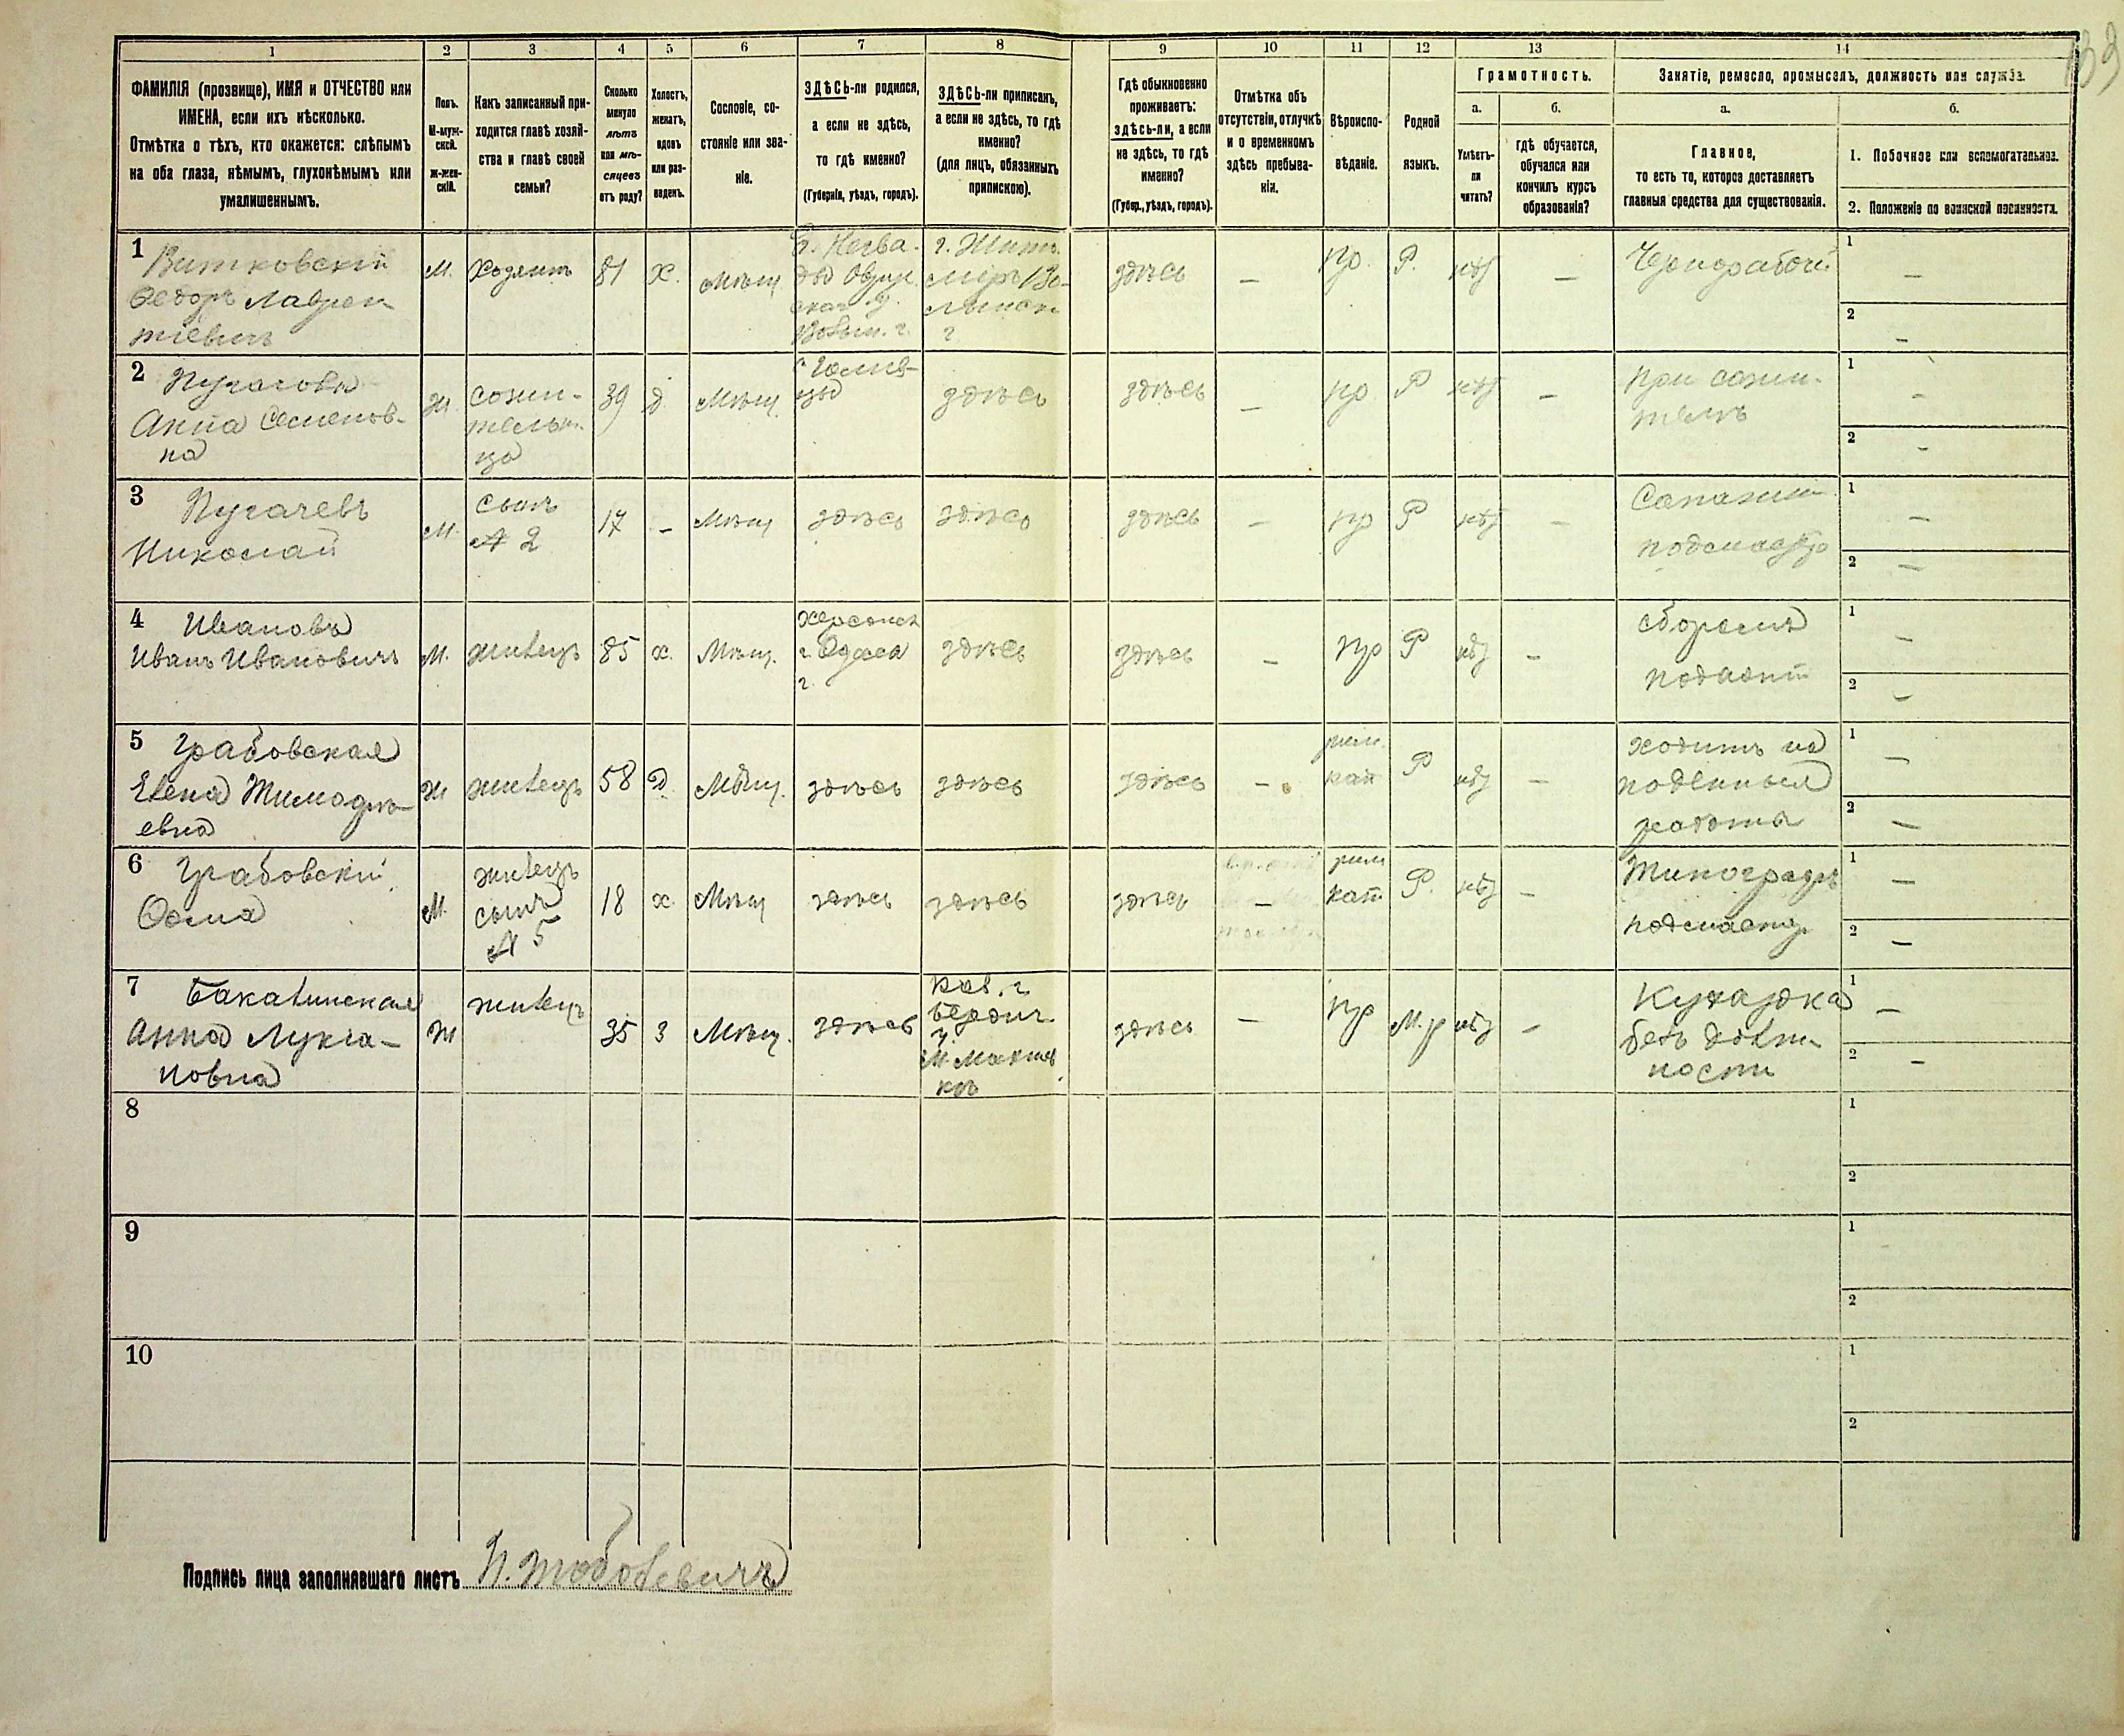 133
1
2
3
4
5
6
7
8
9
10
11
12
13
14
ФАМИЛІЯ (прозвище), ИМЯ и ОТЧЕСТВО или
ИМЕНА, если ихъ нѣсколько.
Отмѣтка о тѣхъ, кто окажется: слѣпымъ
на оба глаза, нѣмымъ, глухонѣмымъ или
умалишеннымъ.
Полъ.
М-муж-
ской.
ж-жен-
скій.
Какъ записанный при-
ходится главѣ хозяй-
ства и главѣ своей
семьи?
Сколько
минуло
лѣтъ
или мѣ-
сяцевъ
отъ роду?
Холостъ,
женатъ,
вдовъ
или раз-
веденъ.
Сословіе, со-
стояніе или зва-
ніе.
ЗДѢСЬ-ли родился,
а если не здѣсь,
то гдѣ именно?
(Губернія, уѣздъ, городъ).
ЗДѢСЬ-ли приписанъ,
а если не здѣсь, то гдѣ
именно?
(для лицъ, обязанныхъ
припискою).
Гдѣ обыкновенно
проживаетъ:
здѣсь-ли, а если
не здѣсь, то гдѣ
именно?
(Губер., уѣздъ, городъ).
Отмѣтка объ
отсутствіи, отлучкѣ
и о временномъ
здѣсь пребыва-
ніи.
Вѣроиспо-
вѣданіе.
Родной
языкъ.
Грамотность.
а.
Умѣетъ-
ли
читать?
б.
гдѣ обучается,
обучался или
кончилъ курсъ
образованія?
Занятіе, ремесло, промыселъ, должность или служба.
а.
Главное,
то есть то, которое доставляетъ
главныя средства для существованія.
б.
1. Побочное или вспомогательное.
2. Положеніе по воинской повинности.
1
Витковскій
Федоръ Лаврен
тіевичъ
М.
Хозяинъ
81
Х.
Мѣщ
Овруч
Волын. г.
г. Жито
міръ Во-
лынск
г
здѣсь
—
пр.
Р.
нѣт
—
Чернорабочій
1 —
2 —
2
Пугачова
Анна Семенов-
на
Ж.
сожи-
тельни-
ца
39
д
Мѣщ.
здѣсь
здѣсь
—
пр
Р
нѣт
—
При сожи-
телѣ
1 —
2 —
3
Пугачевъ
Николай
М.
сынъ
№ 2
17
—
Мѣщ
здѣсь
здѣсь
здѣсь
—
пр
Р
нѣт
—
Сапожн
подмастер
1 —
2 —
4
Ивановъ
Иванъ Ивановичъ
М.
жилецъ
85
х.
Мѣщ.
Херсонск
г Одесса
г.
здѣсь
здѣсь
—
пр
Р
нѣт
—
сборомъ
подаяній
1 —
2 —
5
Грабовская
Елена Тимофѣ-
евна
Ж
жилецъ
58
д.
Мѣщ.
здѣсь
здѣсь
здѣсь
—
рим.
кат
Р
нѣт
—
ходитъ на
поденныя
работы
1 —
2 —
6
Грабовскій
Осма
М.
жилецъ
сынъ
№ 5
18
х.
Мѣщ
здѣсь
здѣсь
здѣсь
—
рим
кат
Р.
нѣт
—
Типографъ
подмастер
1 —
2 —
7
Бакалинская
Анна Лукіа-
новна
Ж
жилецъ
35
з
Мѣщ.
здѣсь
Кіев. г.
Бердич.
у.
м. Махнов
кѣ
здѣсь
—
пр
М. р
нѣт
—
Кухарка
безъ долж
ности
1 —
2 —
8
1
2
9
1
2
10
1
2
Подпись лица заполнявшаго листъ